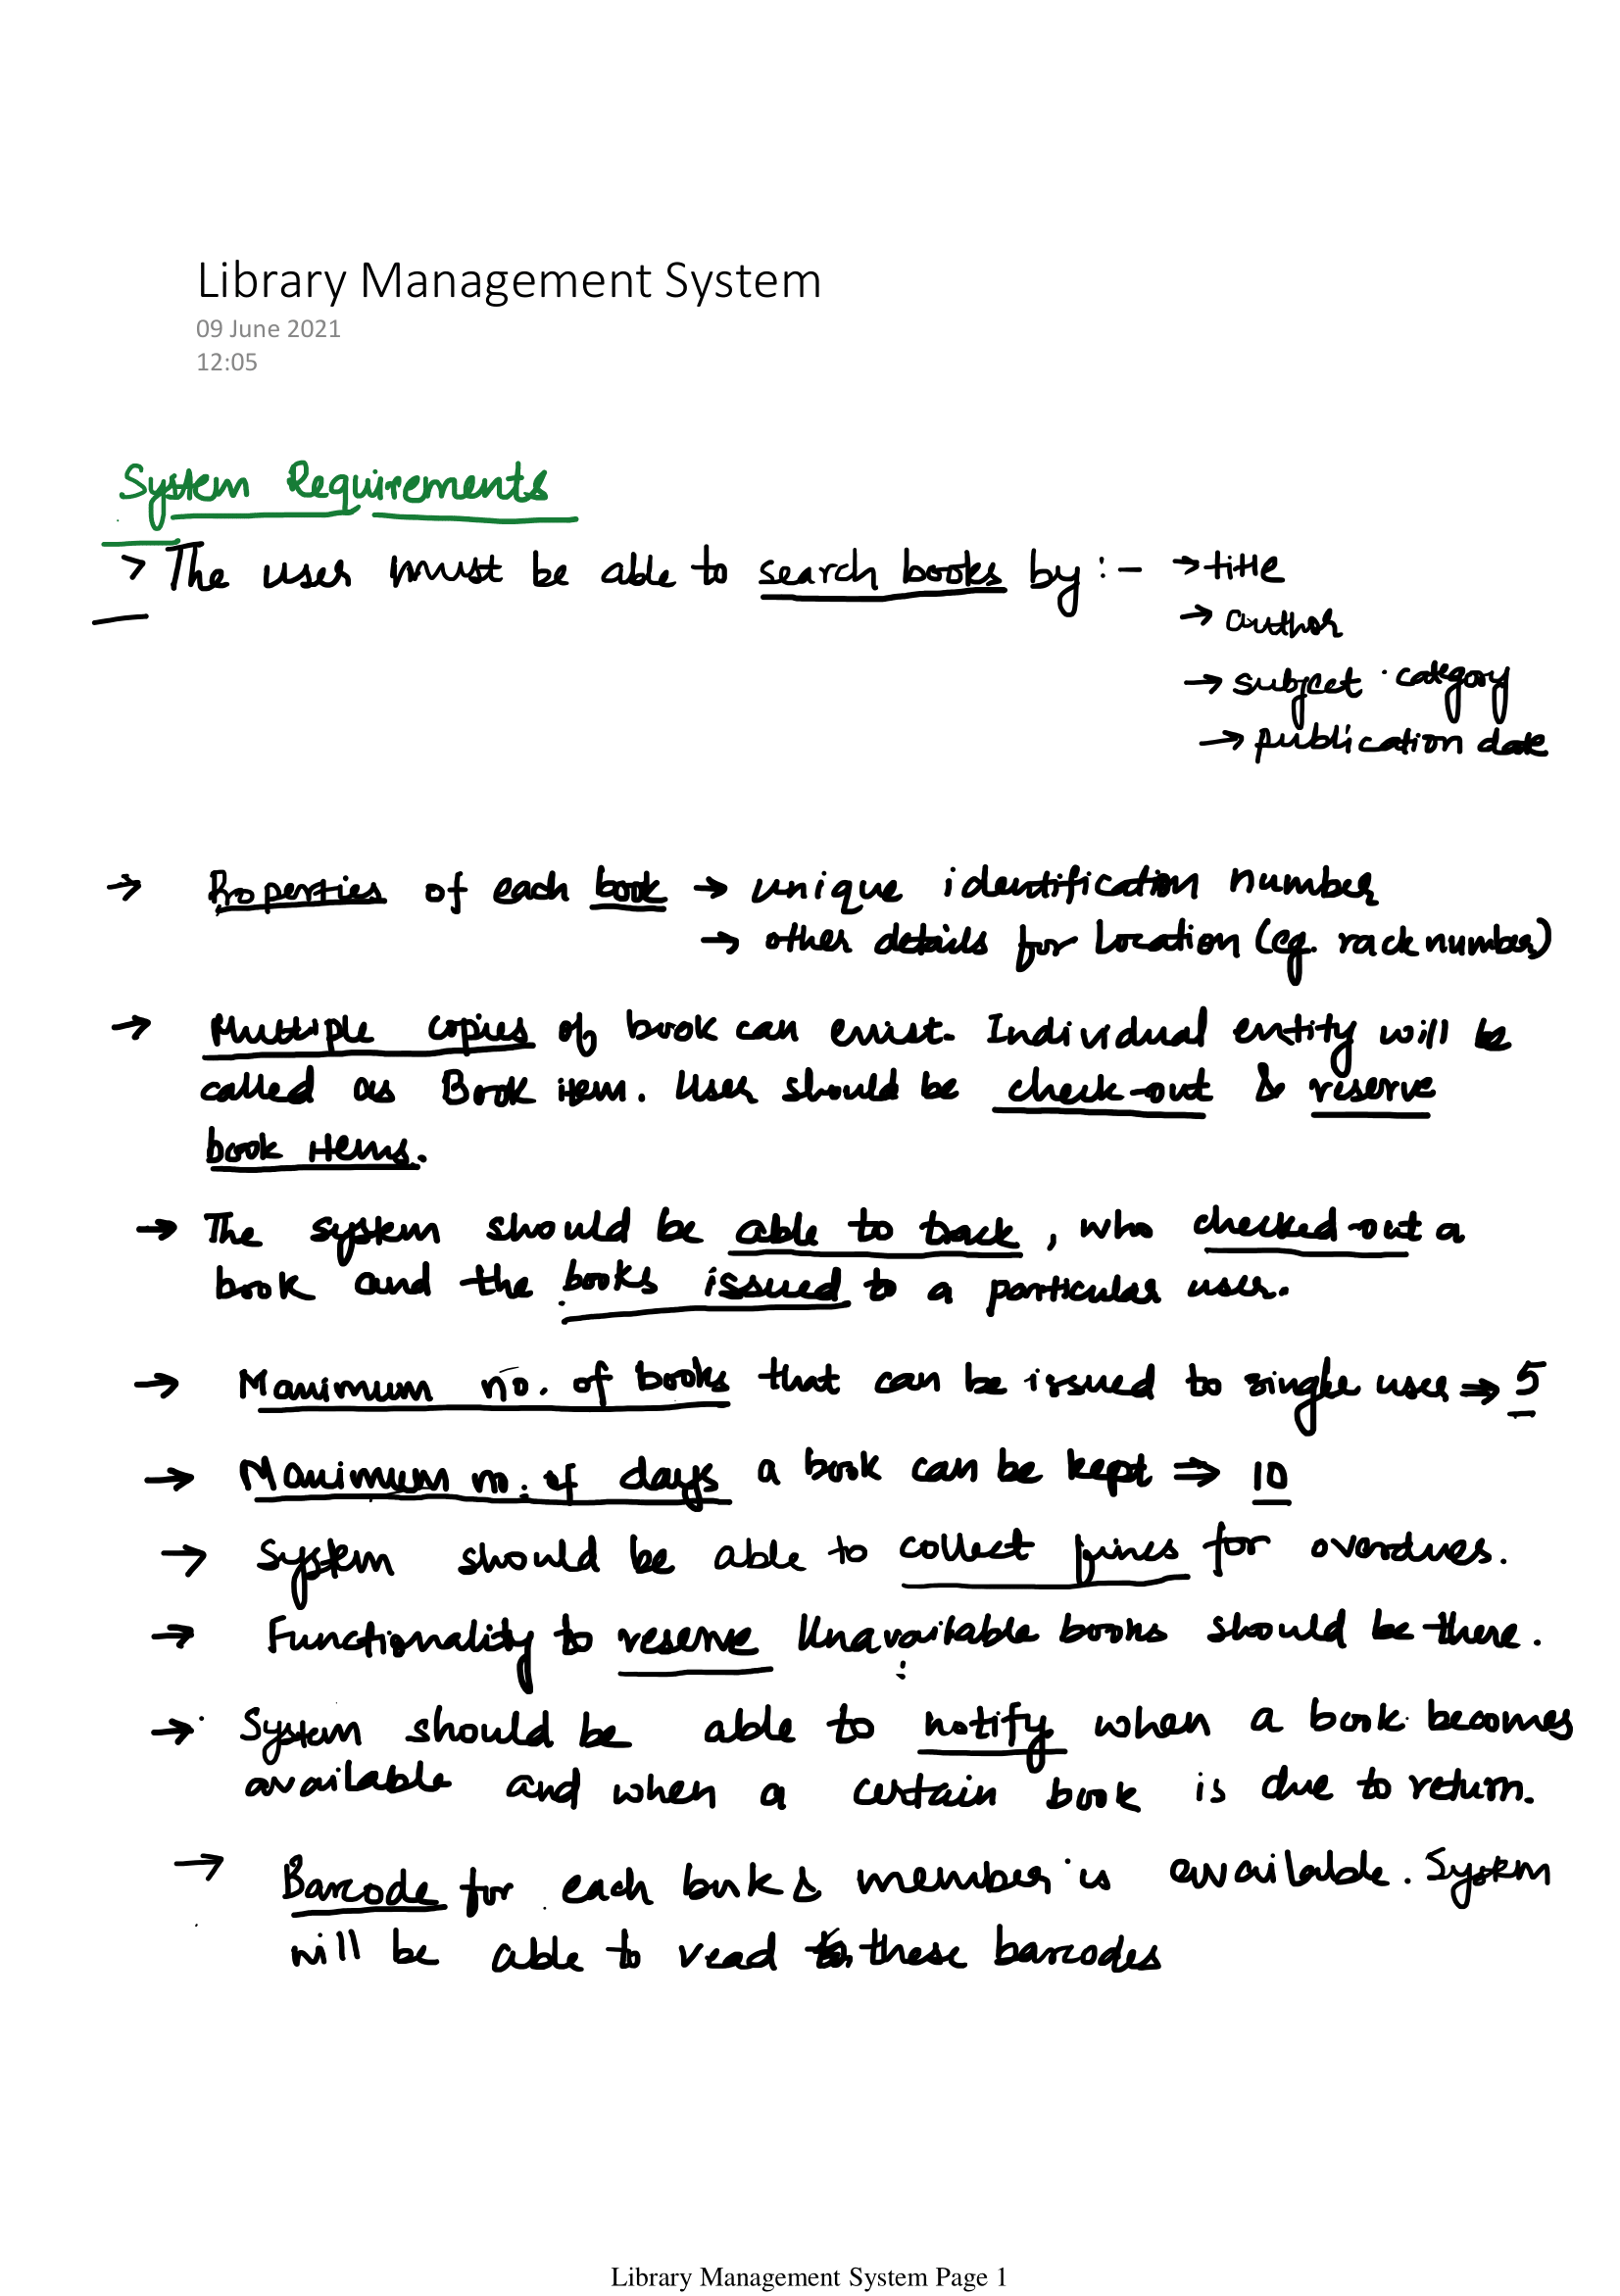 Library Management System
09 June 2021
12:05
System Requirements
→ The user must be able to search books by :- → title
→ author
→ subject category
→ publication date
→ Properties of each book → unique identification number
→ other details for location (eg. rack number)
→ Multiple copies of book can exist. Individual entity will be
called as Book item. User should be check-out & reserve
book items.
→ The system should be able to track, who checked-out a
book and the books issued to a particular user.
→ Maximum no. of books that can be issued to single user ⇒ 5
→ Maximum no. of days a book can be kept ⇒ 10
→ System should be able to collect fines for overdues.
→ Functionality to reserve Unavailable books should be there.
→ System should be able to notify when a book becomes
available and when a certain book is due to return.
→ Barcode for each book & member is available. System
will be able to read these barcodes
Library Management System Page 1